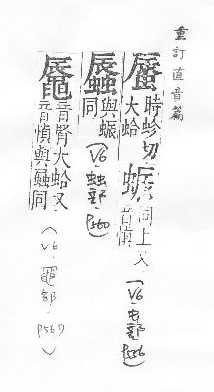 重訂直音篇
蜃時軫切大蛤 蜄同上又音慎 (V6.虫部.P556)
與蜄同 (V6.䖵部.P560)
音腎大蛤又音慎與同 (V6.黽部.P567)